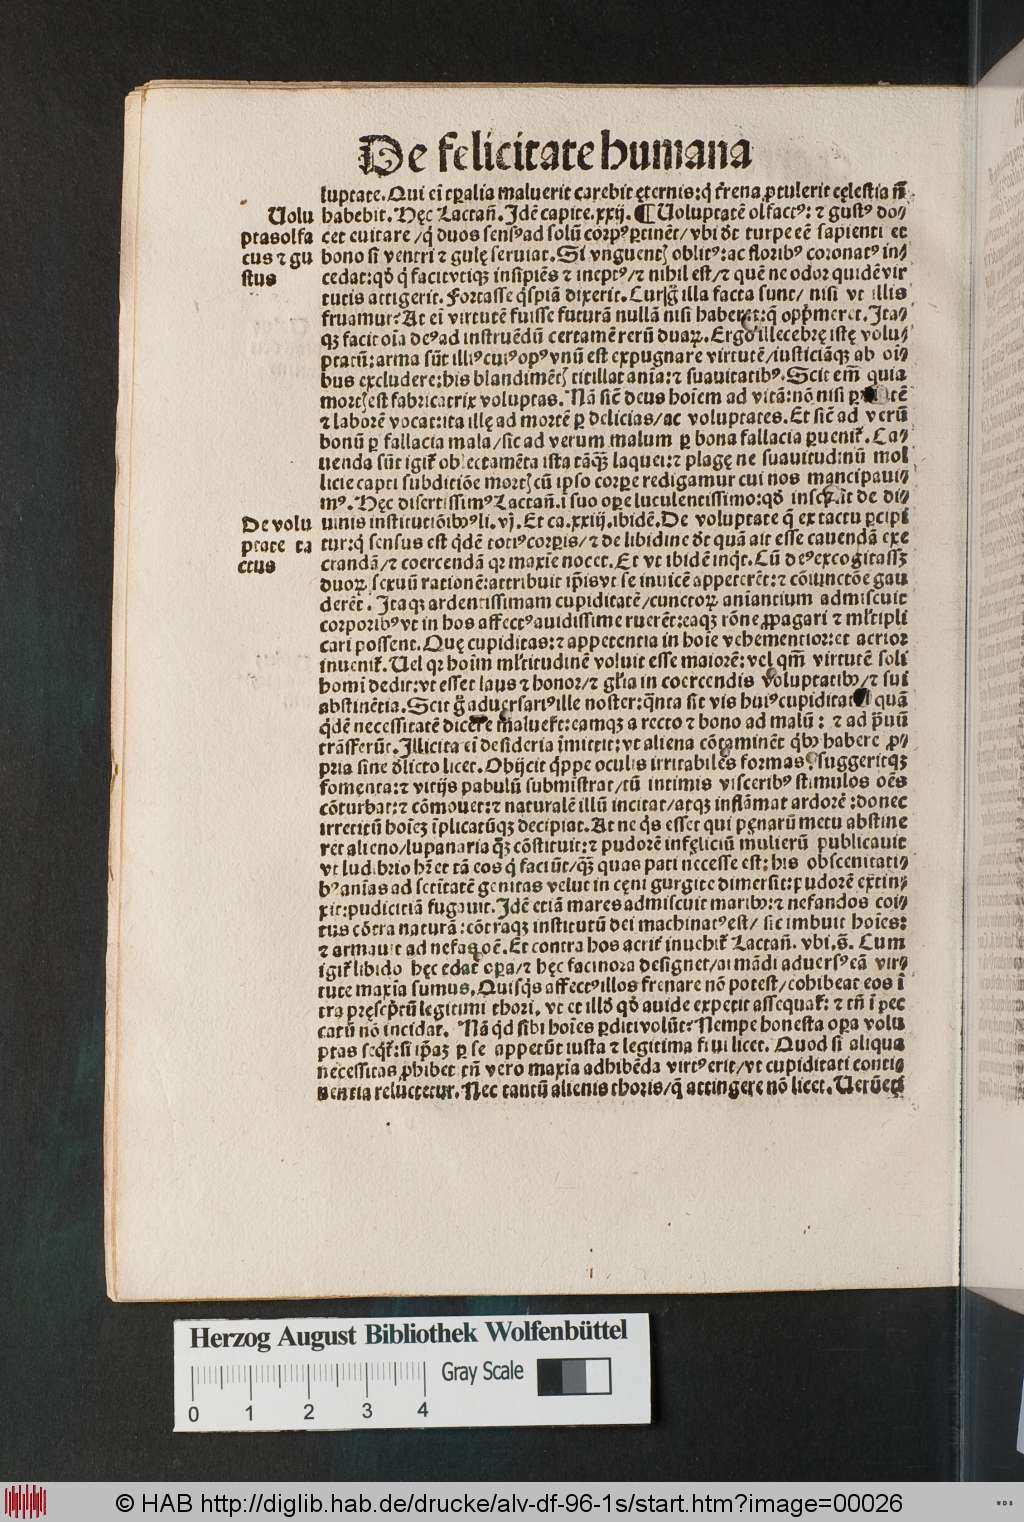 De felicitate humana
luptate. Qui eī tꝑalia maluerit carebit ęternis: q̇ frēna ꝓtulerit cęlestia nō
Uolu
ptas olfa
ctus ⁊ gu
stus
habebit. Hęc Lactañ. Idē capite. xxij. ¶ Voluptatē olfactꝰ: ⁊ gustꝰ do⸗
cet euitare / q̇ duos sensꝰ ad solū corpꝰ ꝑtinēt / vbi dt̄ turpe eē sapienti et
bono si ventri ⁊ gulę seruiat. Si vnguentꝭ oblitꝰ: ac floribꝰ coronatꝰ in⸗
cedat: qd̄ q̇ facit vtiqꝫ insipiēs ⁊ ineptꝰ / ⁊ nihil est / ⁊ quē ne odor quidē vir
tutis attigerit. Fortasse q̇spiā dixerit. Cur g̊ illa facta sunt / nisi vt illis
fruamur? At eī virtutē fuisse futurā nullā nisi haberet: q̄ opp̄meret. Ita⸗
qꝫ facit oīa deꝰ ad instruēdū certamē rerū duaꝝ. Ergo illecebrę istę volu⸗
ptatū: arma sūt illiꝰ cuiꝰ opꝰ vnū est expugnare virtutē / iusticiāqꝫ ab oī⸗
bus excludere: his blandimētꝭ titillat anīa: ⁊ suauitatibꝰ. Scit em̄ quia
mortꝭ est fabricatrix voluptas. Nā sic̄ deus hoīem ad vitā: nō nisi ꝑ
⁊ laborē vocat: ita illę ad mortē ꝑ delicias / ac voluptates. Et sic̄ ad verū
bonū ꝑ fallacia mala / sic ad verum malum ꝑ bona fallacia ꝑuenit̄. Ca⸗
uenda sūt igit̄ oblectamēta ista tāq̄ꝫ laquei: ⁊ plagę ne suauitudinū mol
licie capti subditiōe mortꝭ cū ipso corꝑe redigamur cui nos mancipaui⸗
mꝰ. Hęc disertissimꝰ Lactañ. ī suo oꝑe luculentissimo: qd̄ inscribit de di⸗
De volu
ptate ta
ctus
uinis institutiōibꝰ li. vj. Et ca. xxiij. ibidē. De voluptate q̄ ex tactu ꝑcipi
tur: q̇ sensus est q̇dē totiꝰ corꝑis / ⁊ de libidine dt̄ quā ait esse cauendā exe
crandā / ⁊ coercendā qꝛ maxīe nocet. Et vt ibidē inq̇t. Cū deꝰ excogitassꝫ
duoꝝ sexuū rationē: attribuit ip̄is vt se inuicē appeterēt: ⁊ cōiunctōe gau
derēt. Itaqꝫ ardentissimam cupiditatē / cunctoꝝ aniantium admiscuit
corporibꝰ vt in hos affectꝰ auidissime ruerēt: eaqꝫ rōne ꝓpagari ⁊ ml̄tipli
cari possent. Quę cupiditas: ⁊ appetentia in hoīe vehementior: et acrior
inuenit̄. Uel qꝛ hoīm ml̄titudinē voluit esse maiorē: vel qm̄ virtutē soli
homī dedit: vt esset laus ⁊ honor / ⁊ gl̄ia in coercendis voluptatibꝰ / ⁊ sui
abstinētia. Scit g̊ aduersariꝰ ille noster: q̄nta sit vis huiꝰ cupiditatis quā
q̇dē necessitatē dicere maluer̄t: eamqꝫ a recto ⁊ bono ad malū: ⁊ ad p̄uū
trāsferūt. Illicita eī desideria īmittit: vt aliena cōtaminēt q̇bꝰ habere ꝓ⸗
pria sine dl̄icto licet. Obijcit q̇ppe oculis irritabiles formas: suggeritqꝫ
fomenta: ⁊ vitijs pabulū subministrat / tū intimis visceribꝰ stimulos oēs
cōturbat: ⁊ cōmouet: ⁊ naturalē illū incitat / atqꝫ inflāmat ardorē: donec
irretitū hoīeꝫ īplicatūqꝫ decipiat. At ne q̇s esset qui pęnarū metu abstine
ret alieno / lupanaria qꝫ cōstituit: ⁊ pudorē infęliciū mulierū publicauit
vt ludibrio hr̄et tā eos q̇ faciūt / q̄ꝫ quas pati necesse est: his obscenitati⸗
bꝰ anīas ad sctītatē genitas velut in cęni gurgite dimersit: pudorē extin⸗
xit: pudicitiā fugauit. Idē etiā mares admiscuit maribꝰ: ⁊ nefandos coi⸗
tus cōtra naturā: cōtraqꝫ institutū dei machinatꝰ est / sic imbuit hoīes:
⁊ armauit ad nefas oē. Et contra hos acrit̄ inuehit̄ Lactañ. vbi. s̄. Cum
igit̄ libido hęc edat oꝑa / ⁊ hęc facinora designet / ai mādi aduersꝰ eā vir⸗
tute maxīa sumus. Quisq̇s affectꝰ illos frenare nō potest / cohibeat eos ī
tra pręscp̄tū legitimi thori, vt et illd̄ qd̄ auide expetit assequat̄: ⁊ tn̄ ī pec
catū nō incidat. Nā q̇d sibi hoīes ꝑditi volūt? Nempe honesta oꝑa volu
ptas seq̇t̄: si ip̄aꝫ ꝑ se appetūt iusta ⁊ legitima frui licet. Quod si aliqua
necessitas ꝓhibet tn̄ vero maxīa adhibēda virtꝰ erit / vt cupiditati conti⸗
nentia reluctetur. Nec tantū alienis thoris / q̄ attingere nō licet. Uerūetiā
Herzog August Bibliothek Wolfenbüttel
Gray Scale
0 1 2 3 4
© HAB http://diglib.hab.de/drucke/alv-df-96-1s/start.htm?image=00026